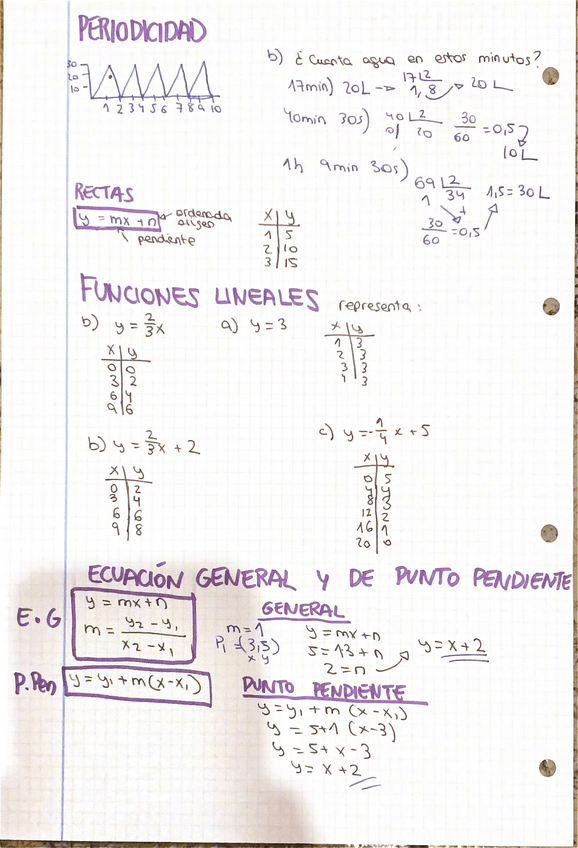 PERIODICIDAD
30
20
10
1 2 3 4 5 6 7 8 9 10
b) ¿Cuanta agua en estos minutos?
17min) 20L → 17 |2 20 L
1, 8
40min 30s) 40 |2 30/60 = 0,5
0/ 20
10L
1h 9min 30s) 69 |2 1,5 = 30 L
1 34
30/60 = 0,5
RECTAS
y = mx + n ordenada
origen
pendiente
x | y
1 | 5
2 | 10
3 | 15
FUNCIONES LINEALES representa:
b) y = 2/3 x
x | y
0 | 0
3 | 2
6 | 4
9 | 6
a) y = 3
x | y
1 | 3
2 | 3
3 | 3
4 | 3
b) y = 2/3 x + 2
x | y
0 | 2
3 | 4
6 | 6
9 | 8
c) y = -1/4 x + 5
x | y
0 | 5
4 | 4
8 | 3
12 | 2
16 | 1
20 | 0
ECUACIÓN GENERAL Y DE PUNTO PENDIENTE
E.G
y = mx + n
m = y₂ - y₁ / x₂ - x₁
P.Pen y = y₁ + m (x - x₁)
GENERAL
m = 1
P₁ = (3,5)
x y
y = mx + n
5 = 1·3 + n
2 = n
y = x + 2
PUNTO PENDIENTE
y = y₁ + m (x - x₁)
y = 5 + 1 (x - 3)
y = 5 + x - 3
y = x + 2